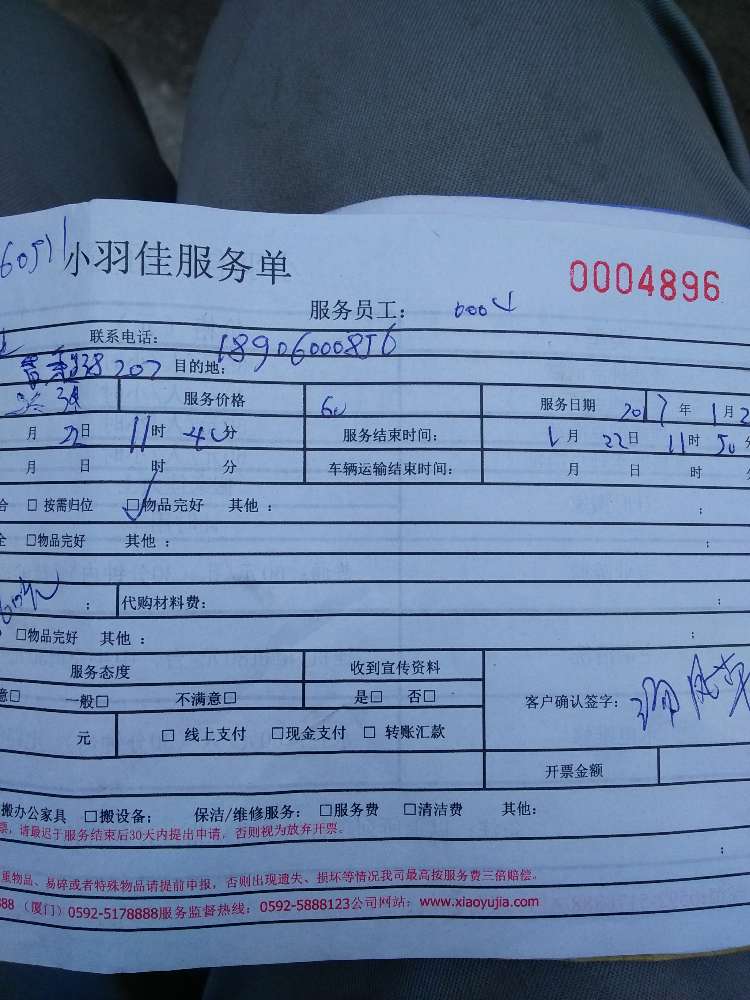 60511 小羽佳服务单 0004896
服务员工: 
联系电话: 18906000856
207 目的地:
服务价格 60 服务日期 2017年1月2
月22日 11时40分 服务结束时间: 1月22日 11时50分
月 日 时 分 车辆运输结束时间: 月 日 时
合 □ 按需归位 □物品完好 其他 : ;
全 □物品完好 其他 : ;
; 代购材料费: ;
□物品完好 其他 : ;
服务态度 收到宣传资料
意□ 一般□ 不满意□ 是□ 否□ 客户确认签字:
元 □ 线上支付 □现金支付 □ 转账汇款
开票金额
搬办公家具 □搬设备; 保洁/维修服务: □服务费 □清洁费 其他:
票, 请最迟于服务结束后30天内提出申请, 否则视为放弃开票。
;
重物品、易碎或者特殊物品请提前申报, 否则出现遗失、损坏等情况我司最高按服务费三倍赔偿。
888 (厦门) 0592-5178888服务监督热线: 0592-5888123公司网站: www.xiaoyujia.com